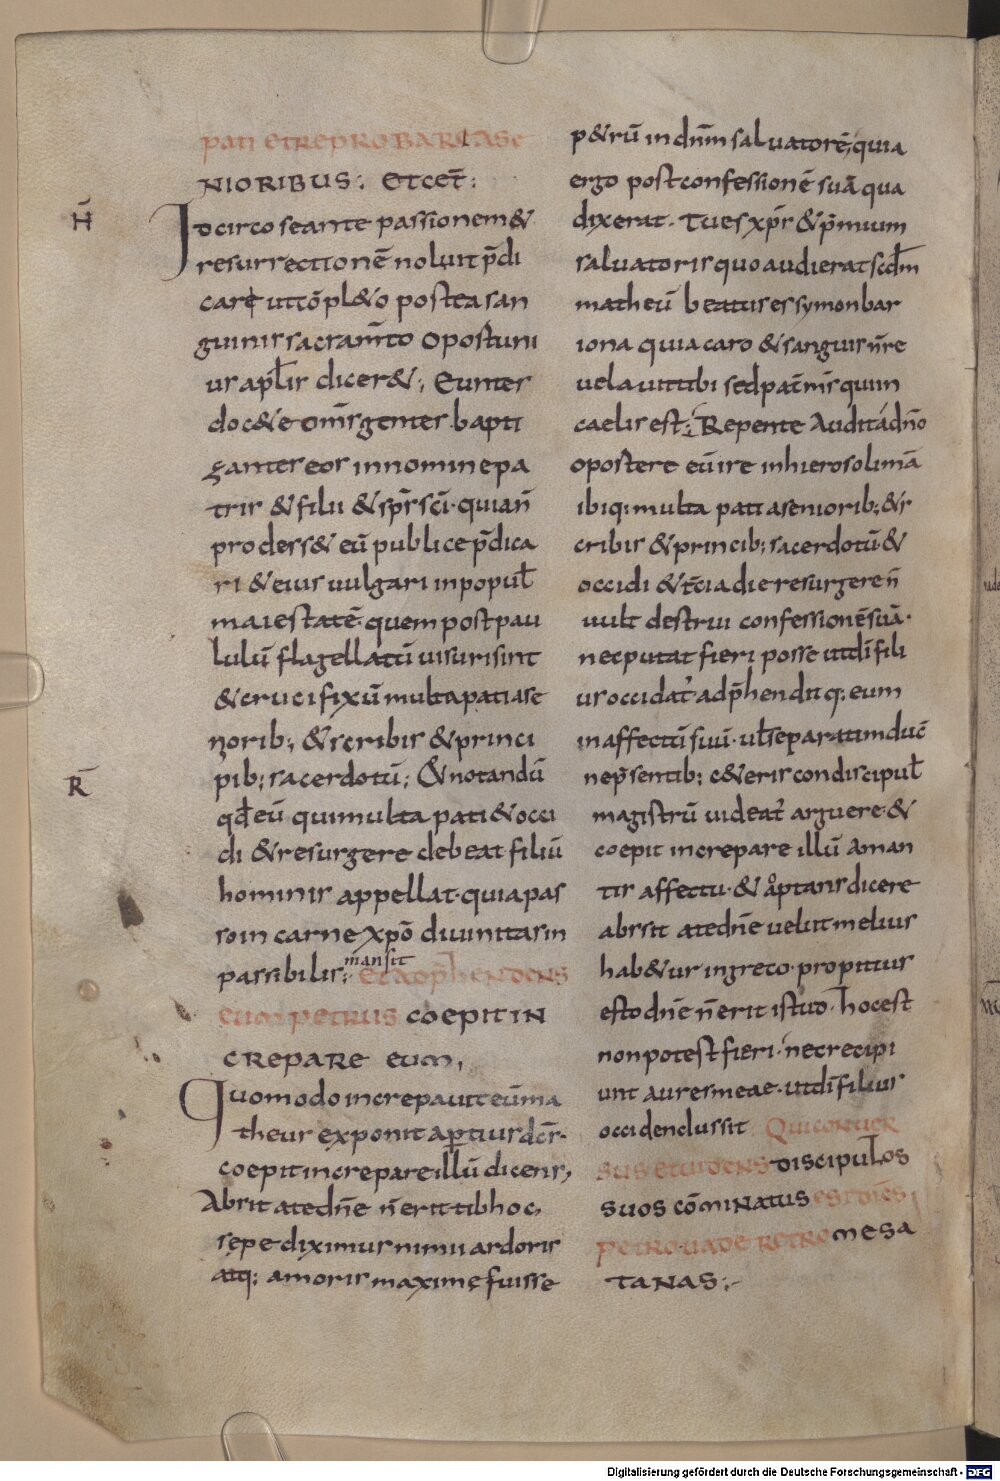 pati et reprobari ase
NIORIBUS: et cet̄:
H̄
Idcirco se ante passionem &
resurrectionē noluit p̄di
care ut cōpl&o postea san
guinis sacram̄to oportuni
us apl̄is dicer&; Euntes
doc&e om̄s gentes bapti
zantes eos in nomine pa
tris & filii & sp̄s sc̄i· quia n̄
prodess& eū publice p̄dica
ri & eius uulgari in popul̄
maiestatē quem post pau
lulū flagellatū uisuri sint
& crucifixū multa pati a se
niorib; & scribis & princi
R̄
pib; sacerdotū; & notandū
qđ eū qui multa pati & occi
di & resurgere debeat filiū
hominis appellat· quia pas
so in carne xp̄o diuinitas in
passibilis mansit: et adp̄hendens
eum petrus coepit in
crepare eum,
Quomodo increpauit eū ma
theus exponit aptius dc̄s·
coepit increpare illū dicens,
Absit a te dn̄e n̄ erit tibi hoc,
sepe diximus nimii ardoris
atq; amoris maxime fuisse
p&rū in dn̄m saluatorē; quia
ergo post confessionē suā qua
dixerat· Tu es xp̄s & p̄mium
saluatoris quo audierat scđm
matheū beatus es symon bar
iona quia caro & sanguis n̄ re
uelauit tibi sed pat̄ m̄s qui in
caelis est; Repente Audit a dn̄o
oportere eū ire in hierosolimā
ibiq; multa pati a seniorib; & s
cribis & princib; sacerdotū· &
occidi & t̄cia die resurgere n̄
uult destrui confessionē suā·
nec putat fieri posse ut dī fili
us occidat̄ adp̄henditq; eum
in affectū suū· ul̄ separatim duc̄
ne p̄sentib; c&eris condiscipul̄
magistrū uideat̄ arguere· &
coepit increpare illū aman
tis affectu· & optans dicere
absit a te dn̄e uel ut melius
hab&ur in greco· propitius
esto dn̄e n̄ erit istud· hoc est
non potest fieri· nec recipi
unt aures meae· ut dī filius
occidendus sit Qui conuer
sus et uidens discipulos
suos cōminatus est dicēs
petro uade retro me sa
tanas:
Digitalisierung gefördert durch die Deutsche Forschungsgemeinschaft - DFG